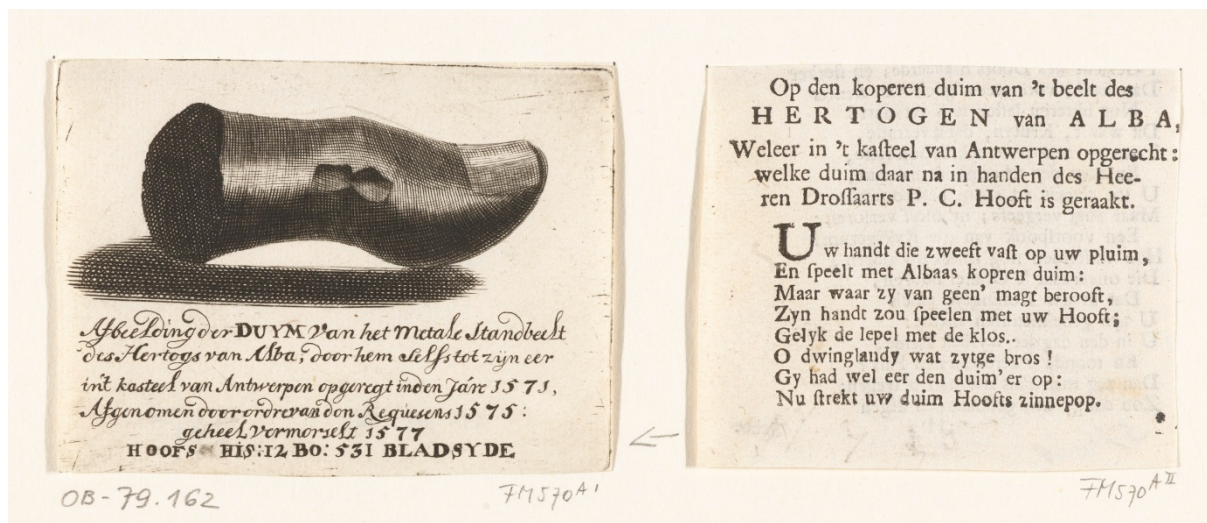 Afbeelding der DUYM Van het Metale Standbeelt
des Hertogs van Alba, door hem selfs tot zijn eer
in't kasteel van Antwerpen opgeregt in den Jare 1571,
Afgenomen door ordre van don Requesens 1575:
geheel Vermorselt 1577
HOOFS HIS: 12 BO: 531 BLADSYDE
OB-79.162
FM570 A I
Op den koperen duim van 't beelt des
HERTOGEN van ALBA,
Weleer in 't kaſteel van Antwerpen opgerecht:
welke duim daar na in handen des Hee-
ren Droſſaarts P. C. Hooft is geraakt.
Uw handt die zweeft vaſt op uw pluim,
En ſpeelt met Albaas kopren duim:
Maar waar zy van geen' magt berooft,
Zyn handt zou ſpeelen met uw Hooft;
Gelyk de lepel met de klos..
O dwinglandy wat zytge bros!
Gy had wel eer den duim'er op:
Nu ſtrekt uw duim Hoofts zinnepop.
FM570 A II